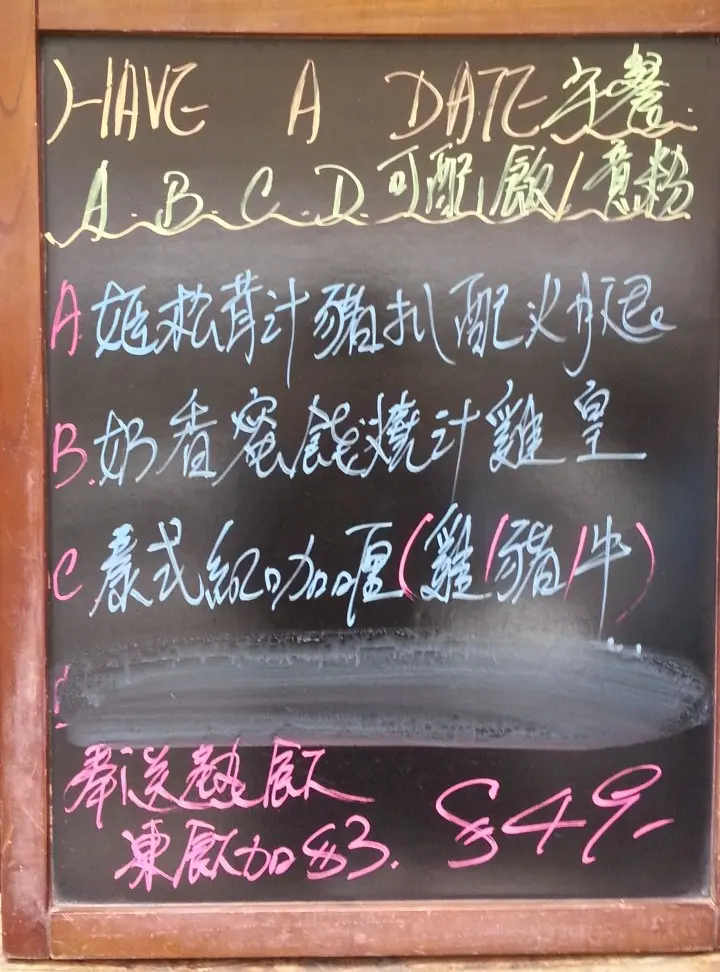 HAVE A DATE 午餐.
A. B. C. D. 可配飯/意粉
A. 姬松茸汁豬扒配火腿
B. 奶香蜜餞燒汁雞皇
C 泰式紅咖喱(雞/豬/牛)
奉送熱飲
凍飲加$3. $49-